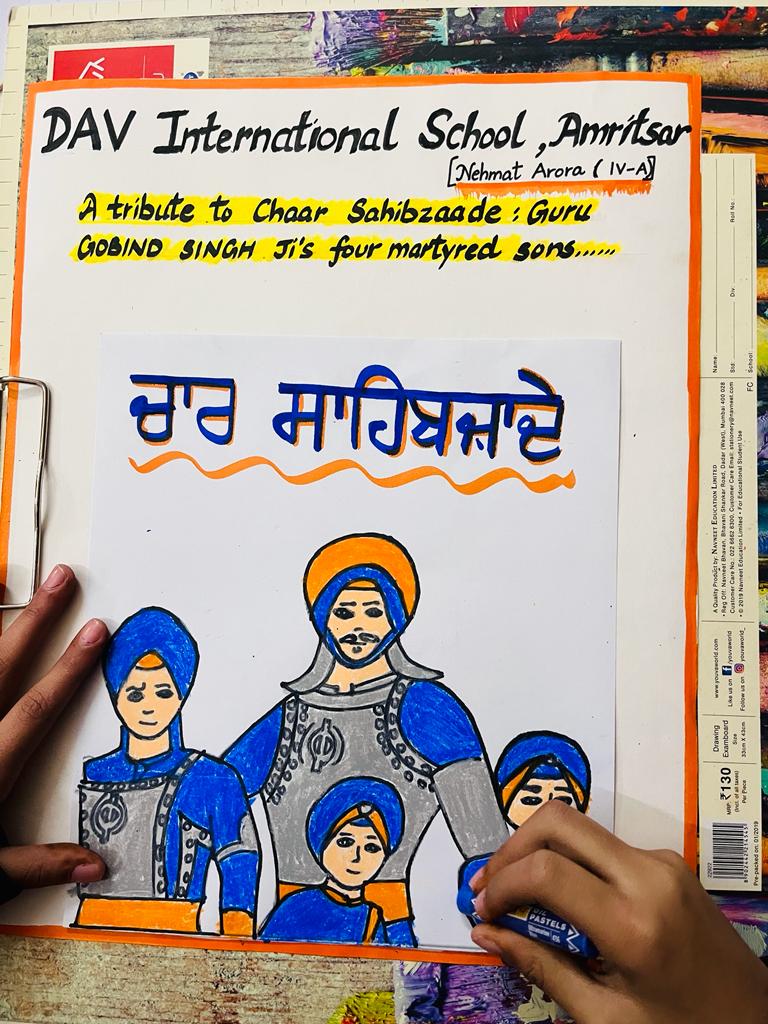 DAV International School, Amritsar
[Nehmat Arora (IV-A)]
A tribute to Chaar Sahibzaade : Guru
GOBIND SINGH Ji's four martyred sons......
ਚਾਰ ਸਾਹਿਬਜ਼ਾਦੇ
OIL
PASTELS
Name:
Roll No.:
Std:
Div.:
School:
FC
A Quality Product by: NAVNEET EDUCATION LIMITED
• Reg. Off: Navneet Bhavan, Bhavani Shankar Road, Dadar (West), Mumbai 400 028
Customer Care No.: 022 6662 6300, Customer Care Email: stationery@navneet.com
• © 2019 Navneet Education Limited • For Educational Student Use
www.youvaworld.com
Like us on f youvaworld
Follow us on youvaworld_
Drawing
Examboard
Size
33cm X 43cm
MRP: ₹130
(Incl. of all taxes)
Per Piece
Pre-packed on: 01/2019
22902